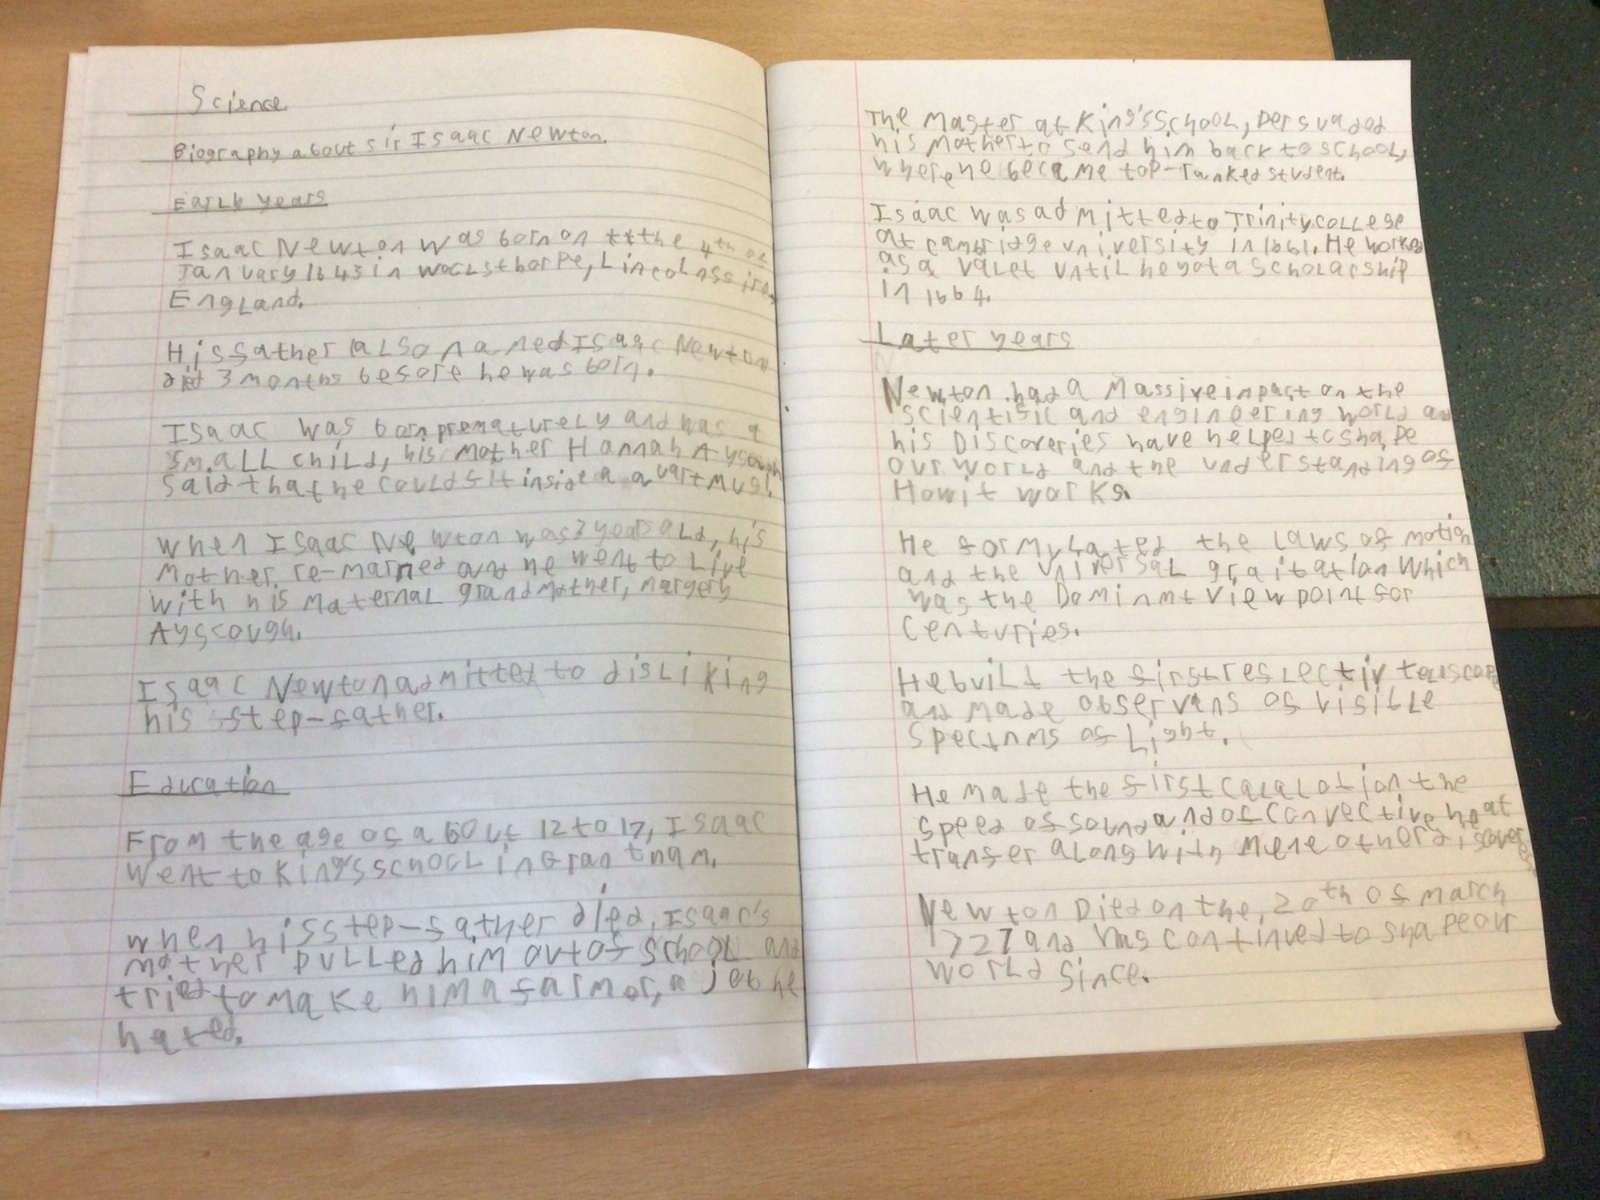 Science
Biography about sir Isaac Newton.
Early years
Isaac Newton was born on ttthe 4th of
January 1643 in woolsthorpe, Lincolnssire
England.
His father (also named Isaac Newton
died 3 months before he was born.
Isaac was born prematurely and was a
small child, his mother Hannah Ayscough
said that he could fit inside a quart mug.
when Isaac Newton was 3 years old, his
mother re-married and he went to live
with his maternal grandmother, margery
Ayscough.
Isaac Newton admitted to disliking
his step-father.
Education
From the age of about 12 to 17, Isaac
went to King's school in Grantham.
when his step-father died, Isaac's
mother pulled him out of school and
tried to make him a farmor, a job he
hated.
The Master at King's School, persuaded
his Mother to send him back to school,
where he became top-ranked student.
Isaac was admitted to Trinity college
at cambridge university in 1661. He worked
as a valet until he got a scholarship
in 1664.
Later years
Newton had a Massive inpact on the
scientific and engineering world and
his Discoveries have helped to shape
our world and the understanding of
How it works.
He formulated the laws of motion
and the univorsal graitation which
was the Dominmt view point for
centuries.
He built the first reflectiv teliscope
and made observens of visible
spectnms of Light.
He made the first calalotion the
speed of sound and of convective heat
transfer along with mene other discoveres
Newton Died on the, 20th of march
1727 and has continued to shape our
world since.